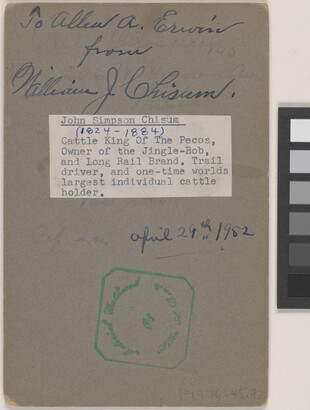 To Allen A. Erwin
from
William J. Chisum.
John Simpson Chisum
(1824-1884)
Cattle King Of The Pecos,
Owner of the Jingle-Bob,
and Long Rail Brand. Trail
driver, and one-time worlds
largest individual cattle
holder.
april 29th 1952